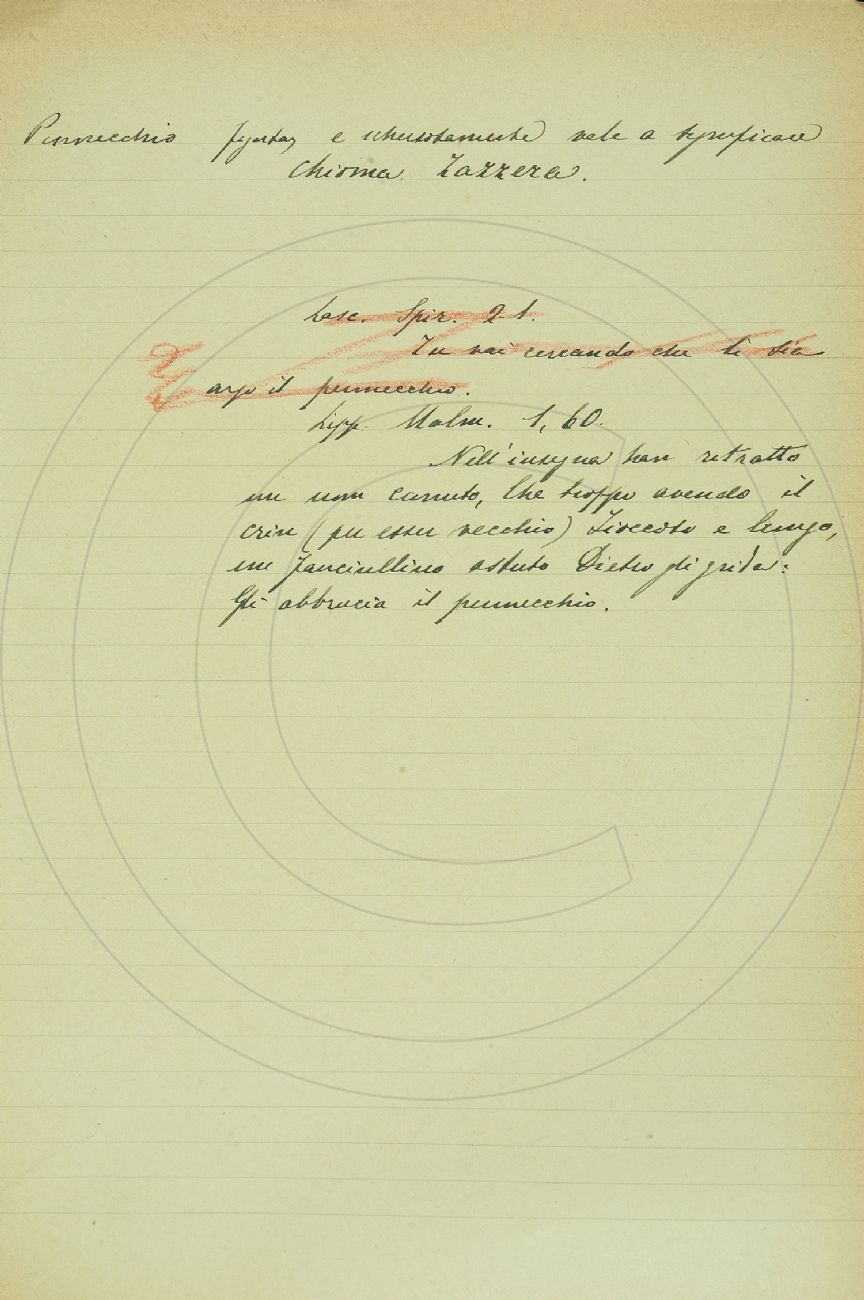 Pennecchio figurtaz e scherzotamente vale a significare
Chioma. Zazzera.
Lasc. Spir. 2. 1.
Tu vai cercando che ti sia
arso il pennecchio.
Lipp. Malm. 1, 60.
Nell'insegna han retratto
un uom canuto, Che troppo avendo il
crin (per esser vecchio) Fioccoso e lungo,
un fanciullino astuto Dietro gli grida:
Gli abbrucia il pennecchio.